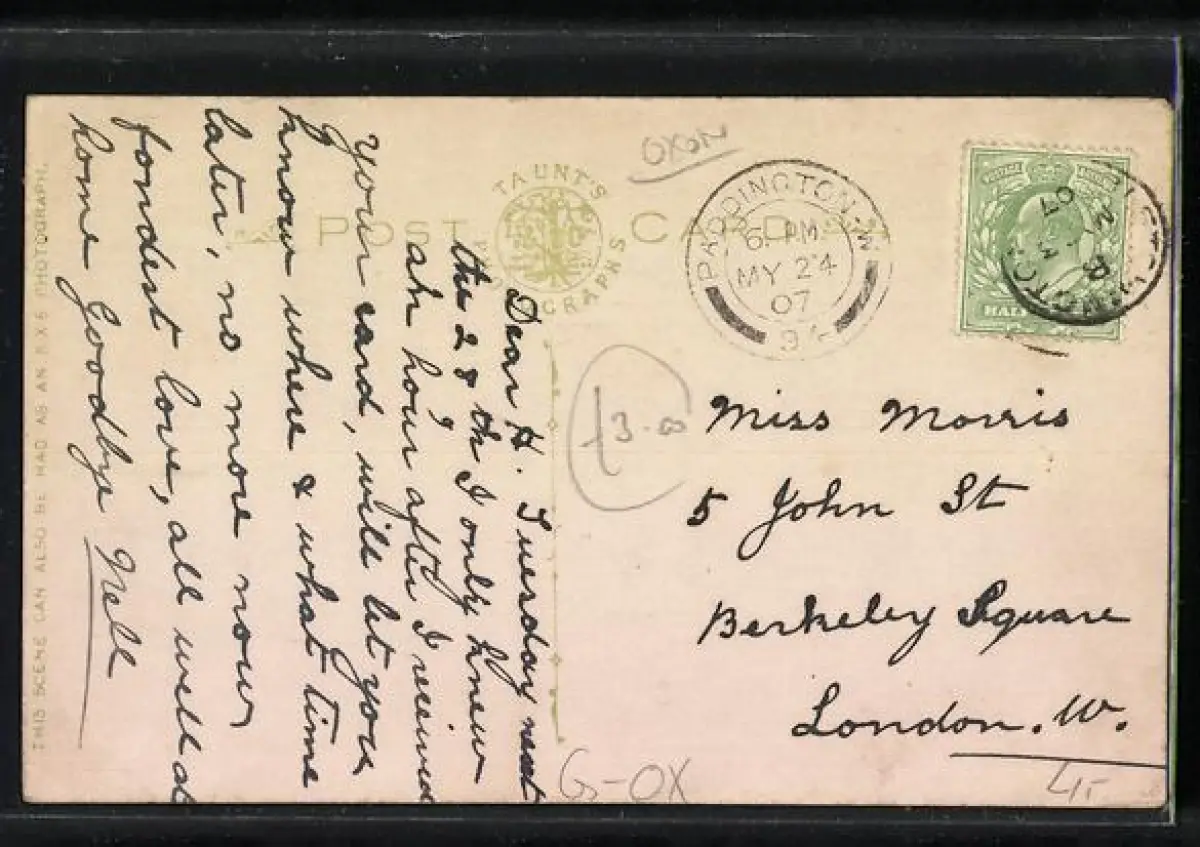 POST CARDS
TAUNT'S
PHOTOGRAPHS
THIS SCENE CAN ALSO BE HAD AS AN 8 X 6 PHOTOGRAPH.
Dear H. Tuesday next
the 28th I only knew
an hour after I received
your card, will let you
know where & what time
later, no more now
fondest love, all well at
home goodbye Nell
OXON
PADDINGTON. W
6. PM
MY 24
07
POSTAGE
HALF
07
£3.00
Miss Morris
5 John St
Berkeley Square
London. W.
G-OX
4/-